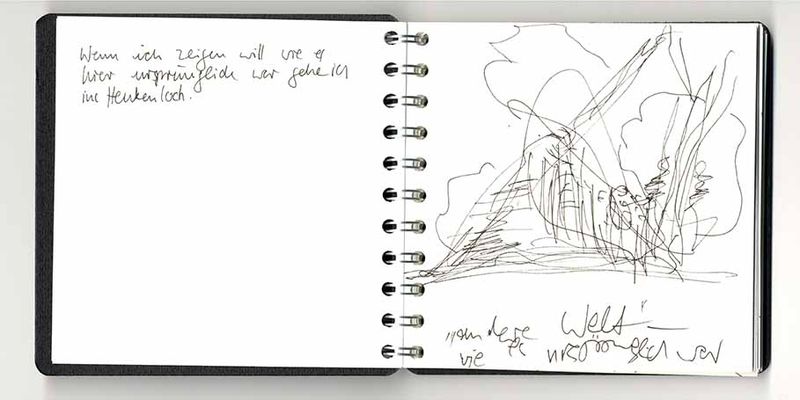 Wenn ich zeigen will wie es
hier ursprünglich war gehe ich
ins Heukenloch.
"andere Welt" –
wie es ursprünglich war